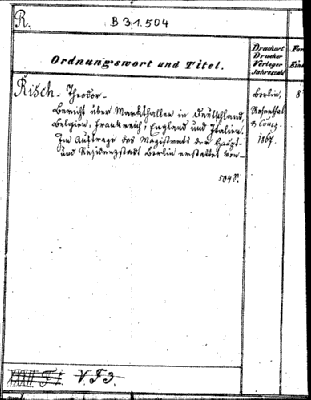 R.
B 31.504
Ordnungswort und Titel.
Druckort
Drucker
Verleger
Jahreszahl
For
Risch. Theodor.
Bericht über Markthallen in Deutschland,
Belgien, Frankreich, England und Italien.
Im Auftrage des Magistrats der Haupt-
und Residenzstadt Berlin erstattet von
Berlin,
8°
1867.
V. F3.